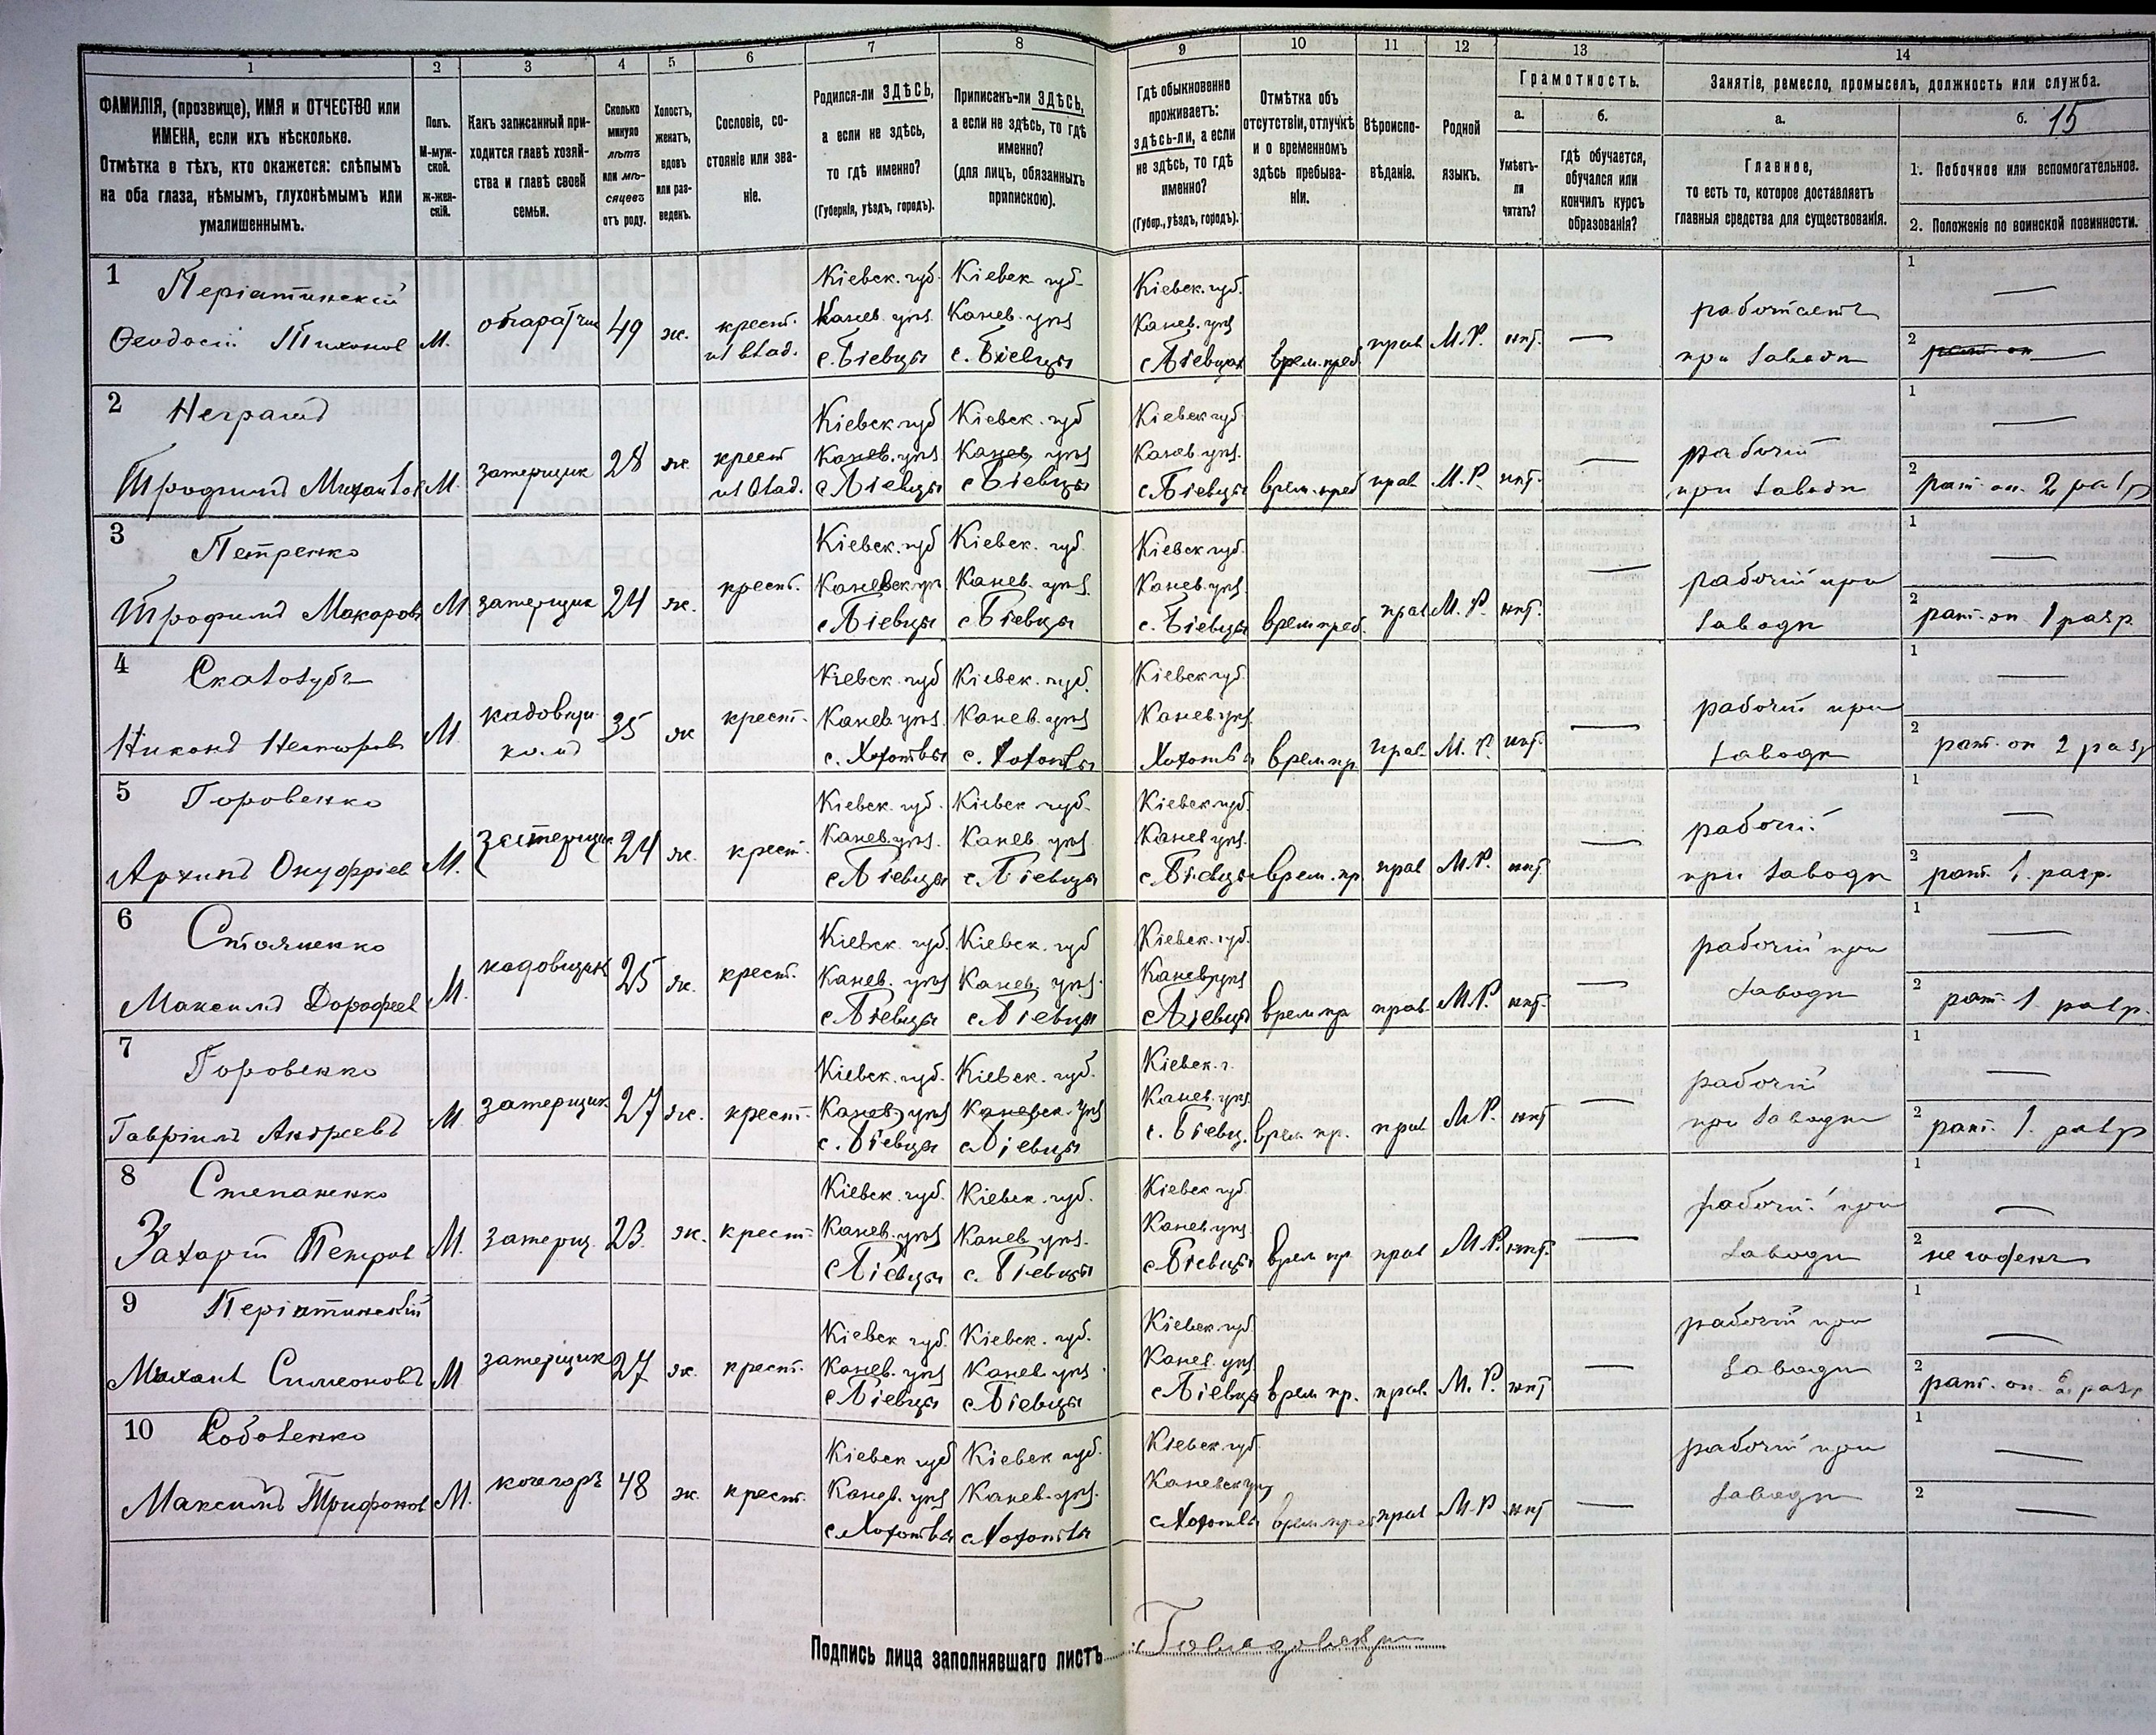 1 2 3 4 5 6 7 8 9 10 11 12 13 14
ФАМИЛІЯ, (прозвище), ИМЯ и ОТЧЕСТВО или ИМЕНА, если ихъ нѣсколько.
Отмѣтка о тѣхъ, кто окажется: слѣпымъ на оба глаза, нѣмымъ, глухонѣмымъ или умалишеннымъ.
Полъ.
М-мужской.
Ж-женскій.
Какъ записанный приходится главѣ хозяйства и главѣ своей семьи.
Сколько минуло лѣтъ или мѣсяцевъ отъ роду.
Холостъ, женатъ, вдовъ или разведенъ.
Сословіе, состояніе или званіе.
Родился-ли ЗДѢСЬ, а если не здѣсь, то гдѣ именно?
(Губернія, уѣздъ, городъ).
Приписанъ-ли ЗДѢСЬ, а если не здѣсь, то гдѣ именно?
(для лицъ, обязанныхъ припискою).
Гдѣ обыкновенно проживаетъ: здѣсь-ли, а если не здѣсь, то гдѣ именно?
(Губер., уѣздъ, городъ).
Отмѣтка объ отсутствіи, отлучкѣ и о временномъ здѣсь пребываніи.
Вѣроисповѣданіе.
Родной языкъ.
Грамотность.
а.
Умѣетъ-ли читать?
б.
гдѣ обучается, обучался или кончилъ курсъ образованія?
Занятіе, ремесло, промыселъ, должность или служба.
а.
Главное,
то есть то, которое доставляетъ главныя средства для существованія.
б. 15
1. Побочное или вспомогательное.
2. Положеніе по воинской повинности.
1 Періатинскій
Ѳеодосій Тихонов М. 49 ж. крест. из влад.
Кіевск. губ. Канев. уѣз. с. Біевцы
Кіевск. губ. Канев. уѣз. с. Біевцы
Кіевск. губ. Канев. уѣз. с. Біевцы
врем. преб. прав. М. Р. нѣт. —
работает при заводѣ
1 —
2 —
2
Трофимъ Михайлов М. затерщик 28 ж. крест из влад.
Кіевск. губ Канев. уѣз с. Біевцы
Кіевск. губ Канев. уѣз с. Біевцы
Кіевск губ Канев уѣз. с. Біевцы
врем. преб прав М. Р. нѣт. —
рабочій при заводѣ
1 —
2 рат. оп. 2 разр
3 Петренко
Трофимъ Макаровъ М. затерщик 24 ж. крест.
Кіевск. губ Каневск. уѣ. с. Біевцы
Кіевск. губ. Канев. уѣз. с. Біевцы
Кіевск губ. Канев. уѣз. с. Біевцы
врем преб. прав М. Р. нѣт. —
рабочій при заводѣ
1 —
2 рат. оп 1 разр.
4 Скалозубъ
Никонъ Несторовъ М 35 ж крест.
Кіевск. губ Канев. уѣз. с. Хохотва
Кіевск. губ. Канев. уѣз с. Хохотва
Кіевск губ. Канев. уѣз. Хохотва
врем пр прав М. Р. нѣт. —
рабочій при заводѣ
1 —
2 рат. оп 2 разр
5 Горовенко
Архипъ Онуфріев М. затерщик 24 ж. крест.
Кіевск. губ. Канев. уѣз. с. Біевцы
Кіевск губ. Канев. уѣз. с. Біевцы
Кіевск губ. Канев уѣз. с. Біевцы
врем. пр. прав М. Р. нѣт —
рабочій при заводѣ
1 —
2 рат. 1. разр.
6 Стояненко
Максимъ Дорофеев М. кадовщик 25 ж. крест.
Кіевск. губ. Канев. уѣз с. Біевцы
Кіевск. губ Канев. уѣз. с. Біевцы
Кіевск. губ. Канев уѣз с. Біевцы
врем пр прав. М. Р. нѣт. —
рабочій при заводѣ
1 —
2 рат. 1. разр.
7 Горовенко
Гавріилъ Андреевъ М. затерщик 27 ж. крест.
Кіевск. губ. Канев. уѣз с. Біевцы
Кіевск. губ. Каневск. уѣз с. Біевцы
Кіевск. г. Канев. уѣз. с. Біевц.
врем пр. прав М. Р. нѣт —
рабочій при заводѣ
1 —
2 рат. 1. разр
8 Степаненко
Захарій Петров М. затерщ. 23. ж. крест.
Кіевск. губ. Канев. уѣз с. Біевцы
Кіевск. губ. Канев. уѣз. с. Біевцы
Кіевск губ Канев уѣз. с. Біевцы
врем пр. прав М. Р. нѣт. —
рабочій при заводѣ
1 —
2 не годенъ
9 Періатинскій
Михаил Симеоновъ М затерщик 27 ж. крест.
Кіевск губ. Канев. уѣз с. Біевцы
Кіевск. губ. Канев уѣз. с. Біевцы
Кіевск. губ. Канев. уѣз с. Біевцы
врем пр. прав. М. Р. нѣт —
рабочій при заводѣ
1 —
2 рат. оп. 2 разр
10 Соболенко
Максимъ Трифонов М. кочегаръ 48 ж. крест.
Кіевск губ Канев. уѣз с. Хохотва
Кіевск губ. Канев. уѣз. с. Хохотва
Кіевск губ. Каневск уѣз с. Хохотва
врем преб прав М. Р нѣт —
рабочій при заводѣ
1 —
2 —
Подпись лица заполнявшаго листъ